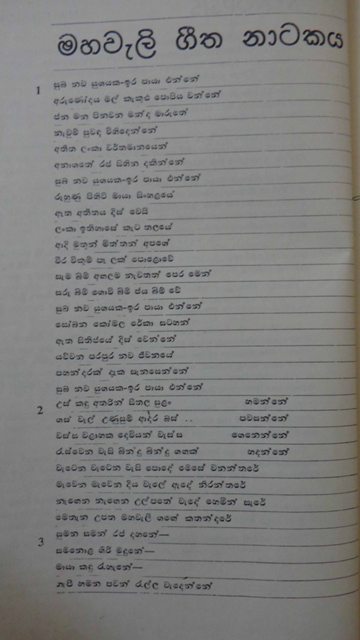 මහවැලි ගීත නාටකය
1 සුබ නව යුගයක-ඉර පායා එන්නේ
අරුණෝදය මල් කැකුළු පොපිය වන්නේ
ජන මන පිනවන මන්ද මාරුතේ
නැවුම් සුවඳ විහිදෙන්නේ
අතීත ලංකා වර්තමානයෙන්
අනාගතේ රජ සිහින දකින්නේ
සුබ නව යුගයක-ඉර පායා එන්නේ
රුහුණු පිහිටි මායා සිංහළයේ
ඈත අතීතය දිස් වෙයි
ලංකා ඉතිහාසේ කැට තලයේ
ආදි මුතුන් මිත්තන් අපගේ
වීර විකුම් පෑ ලක් පොළොවේ
සැම බිම් අඟලම නැවතත් පෙර මෙන්
සරු බිම් ගොවි බිම් ජය බිම් වේ
සුබ නව යුගයක-ඉර පායා එන්නේ
සෝබන කෝමල රේකා සටහන්
ඈත සිතිජයේ දිස් වෙන්නේ
යව්වන පරපුර නව ජීවනයේ
පහන්දරක් දැක සැනසෙන්නේ
සුබ නව යුගයක-ඉර පායා එන්නේ
2 උස් කඳු අතරින් සීතල සුළං හමන්නේ
ගස් වැල් උණුසුම් ආදර බස් .. පවසන්නේ
වස්ස වලාහක දෙවියන් වැස්ස ගෙනෙන්නේ
රැස්වෙන වැසි බින්දු බින්දු ගඟක් හදන්නේ
වැටෙන වැටෙන වැසි පොදේ මෙසේ වනන්තරේ
මැවෙන මැවෙන දිය වැලේ ඇදේ නිරන්තරේ
නැගෙන නැගෙන උල්පතේ වැදේ හෙමින් සැරේ
මෙතැන උපත මහවැලි ගඟේ කතන්දරේ
3 සුමන සමන් රජ දහනේ—
සමනොළ ගිරි මුදුනේ—
මායා කඳු රැහැනේ—
නැසී ගමන පවන් රැල්ල වැදෙන්නේ